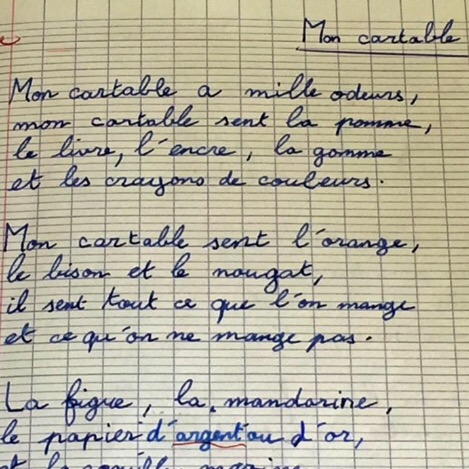 Mon cartable
Mon cartable a mille odeurs,
mon cartable sent la pomme,
le livre, l'encre, la gomme
et les crayons de couleurs.
Mon cartable sent l'orange,
le bison et le nougat,
il sent tout ce que l'on mange
et ce qu'on ne mange pas.
La figue, la mandarine,
le papier d'argent ou d'or,